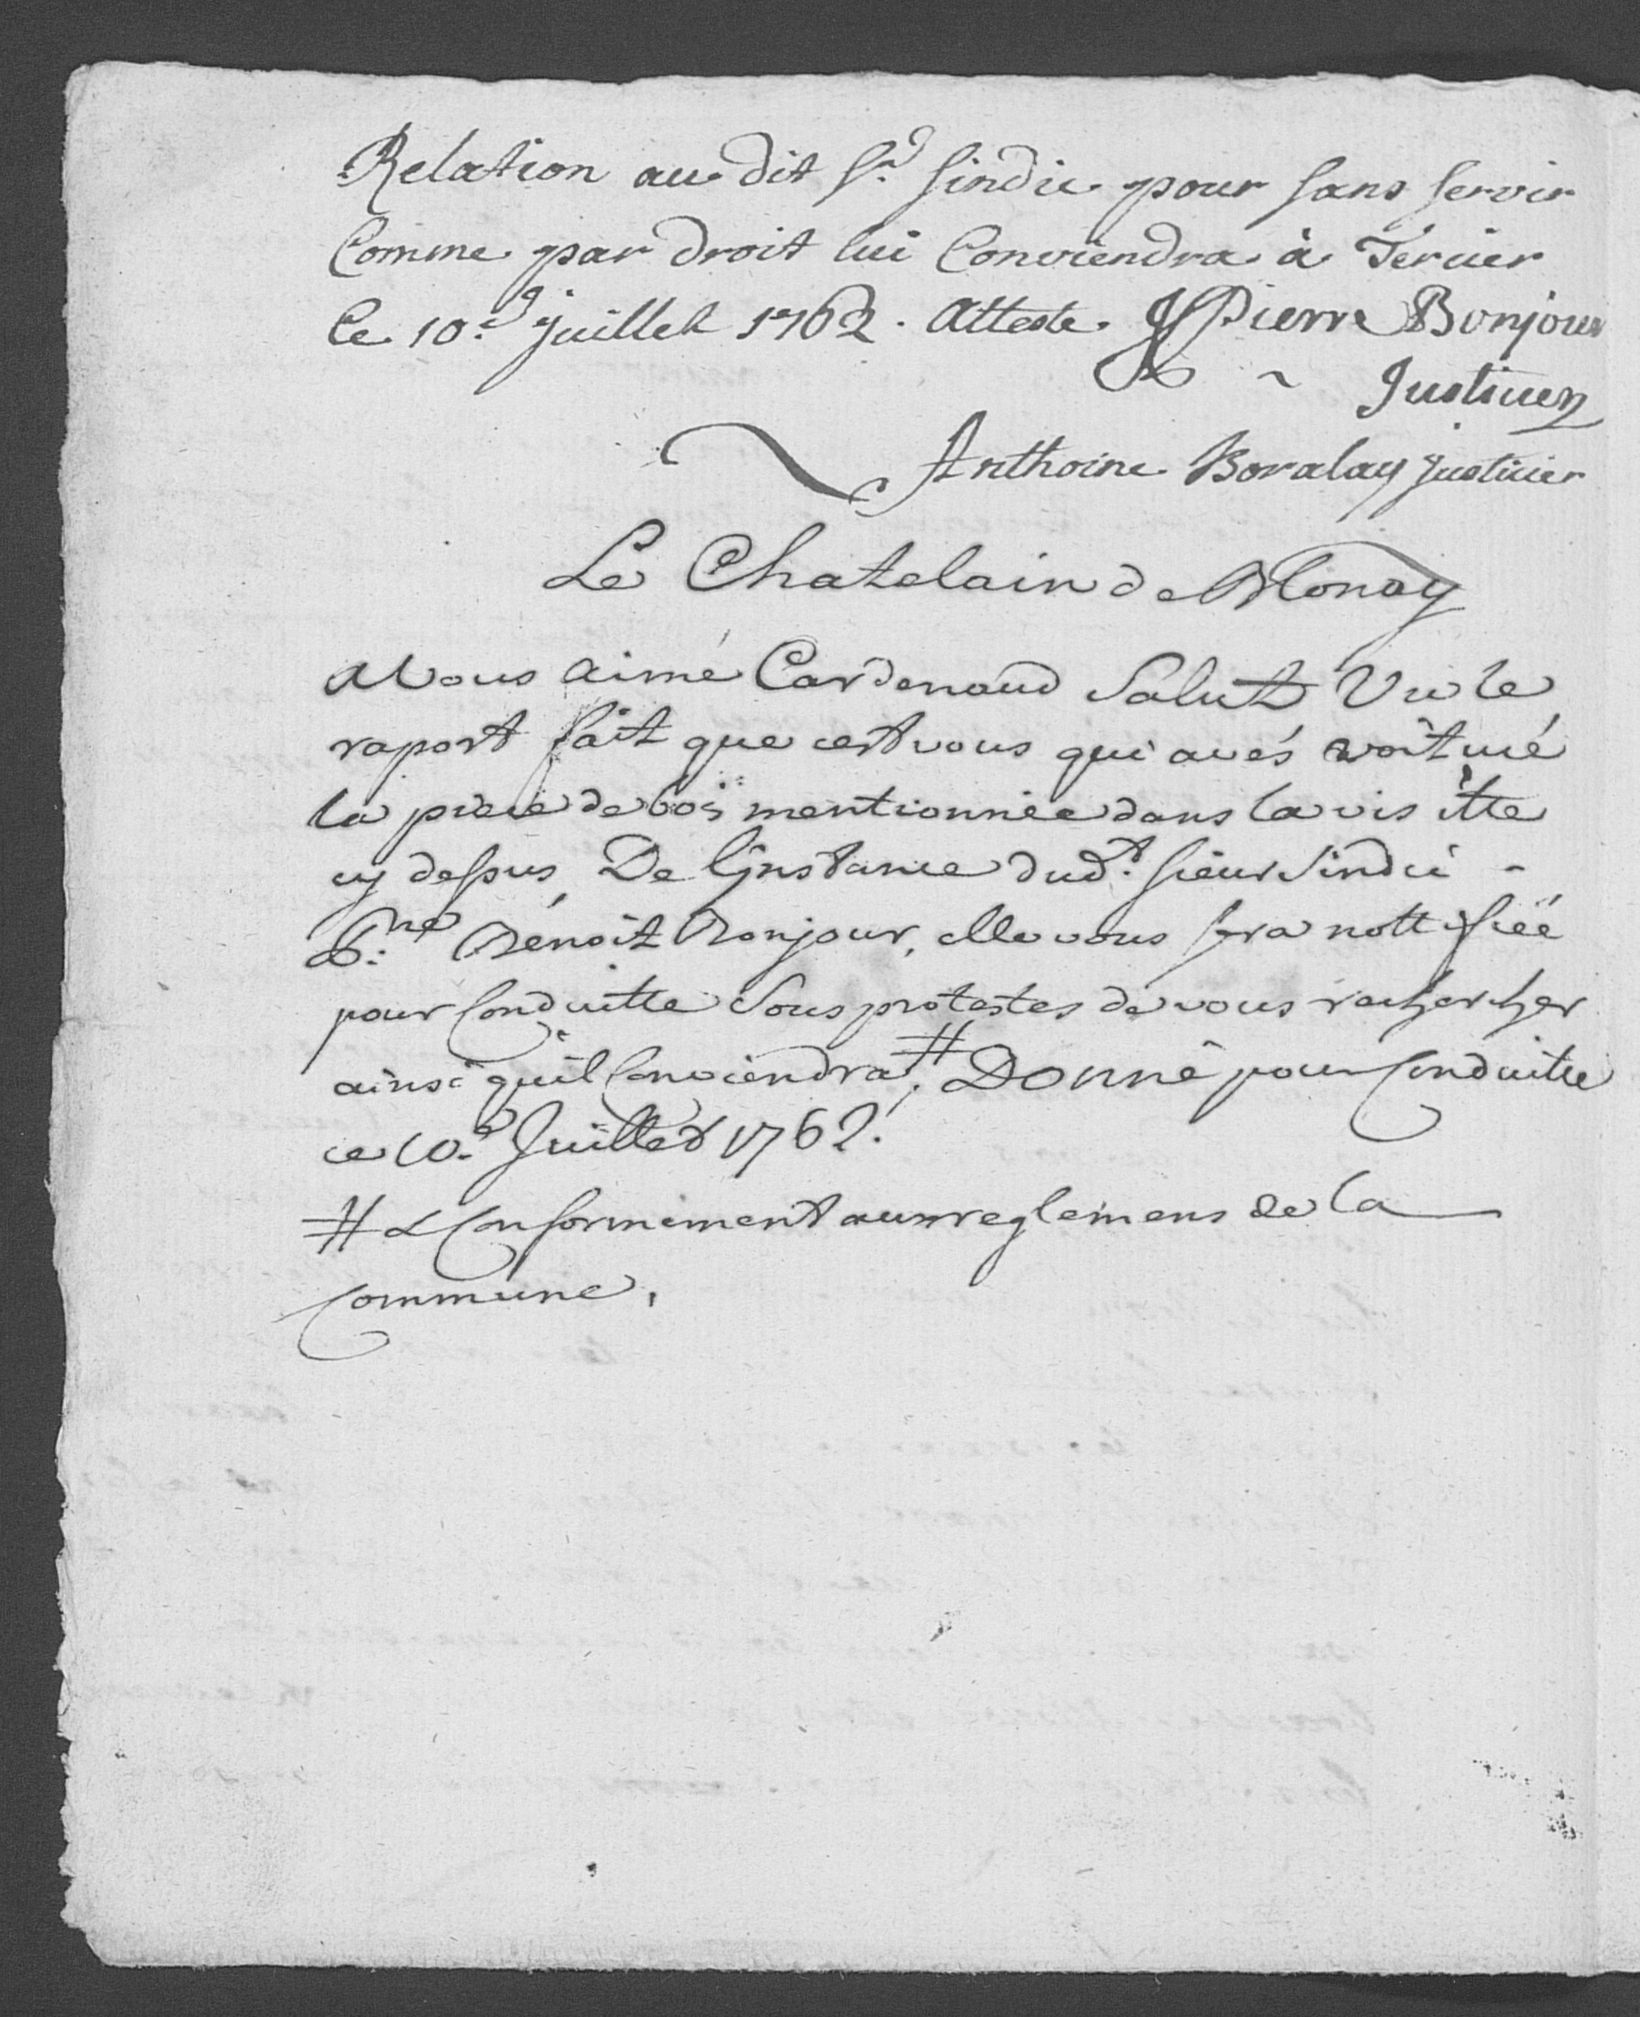 Relation au dit Sr. Sindic pour sans servir
Comme par droit lui Conviendra à Tercier
Ce 10.e juillet 1762. Atteste. JPierre Bonjour
Justicier
Anthoine Boralay justicier
Le Chatelain de Blonay
A Vous aimé Cardenoud Salut Vu le
raport fait que cest vous qui avés voituré
la piece de bois mentionnée dans la visitte
cy dessus, De Linstance dud.t sieur Sindic -
Benoit Bonjour, elle vous sera nottifiéé
pour Conduitte Sous protestes de vous rechercher
ainsi quil Conviendra, # Donné pour Conduitte
ce 10.e Juillet 1762.
# & Conformement aux reglemens de la
Commune,